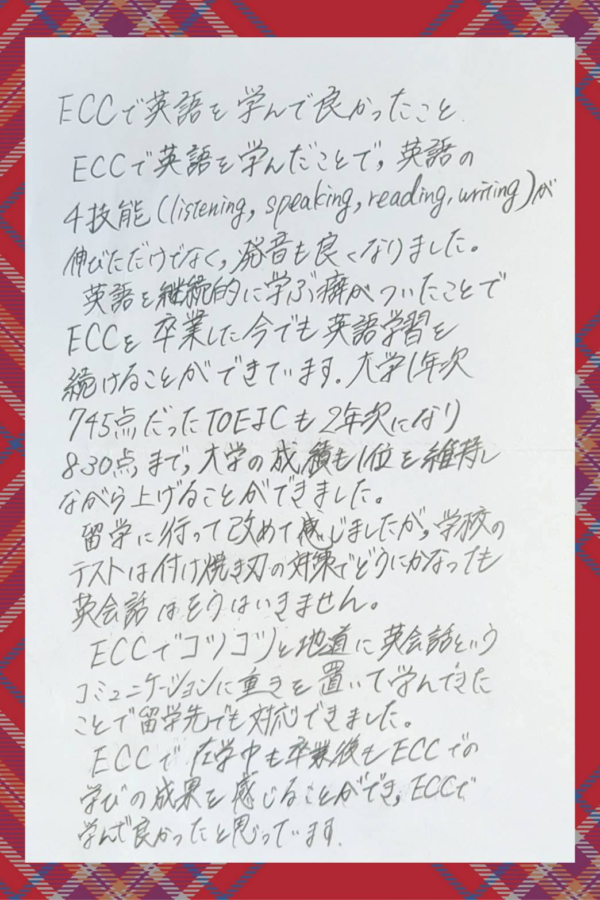 ECCで英語を学んで良かったこと
ECCで英語を学んだことで, 英語の
4技能(listening, speaking, reading, writing)が
伸びただけでなく, 発音も良くなりました。
英語を継続的に学ぶ癖がついたことで
ECCを卒業した今でも英語学習を
続けることができています. 大学1年次
745点だったTOEICも2年次になり
830点まで, 大学の成績も1位を維持し
ながら上げることができました。
留学に行って改めて感じましたが, 学校の
テストは付け焼き刃の対策でどうにかなっても
英会話はそうはいきません。
ECCでコツコツと地道に英会話という
コミュニケーションに重きを置いて学んできた
ことで留学先でも対応できました。
ECCで在学中も卒業後もECCでの
学びの成果を感じることができ, ECCで
学んで良かったと思っています.